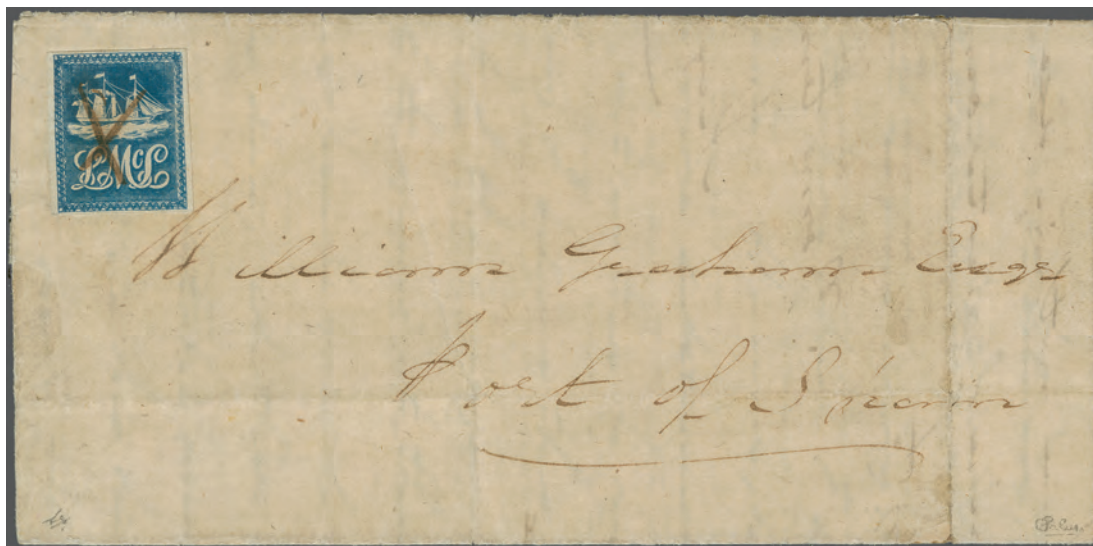 LMcL
William Graham Esqr
Port of Spain